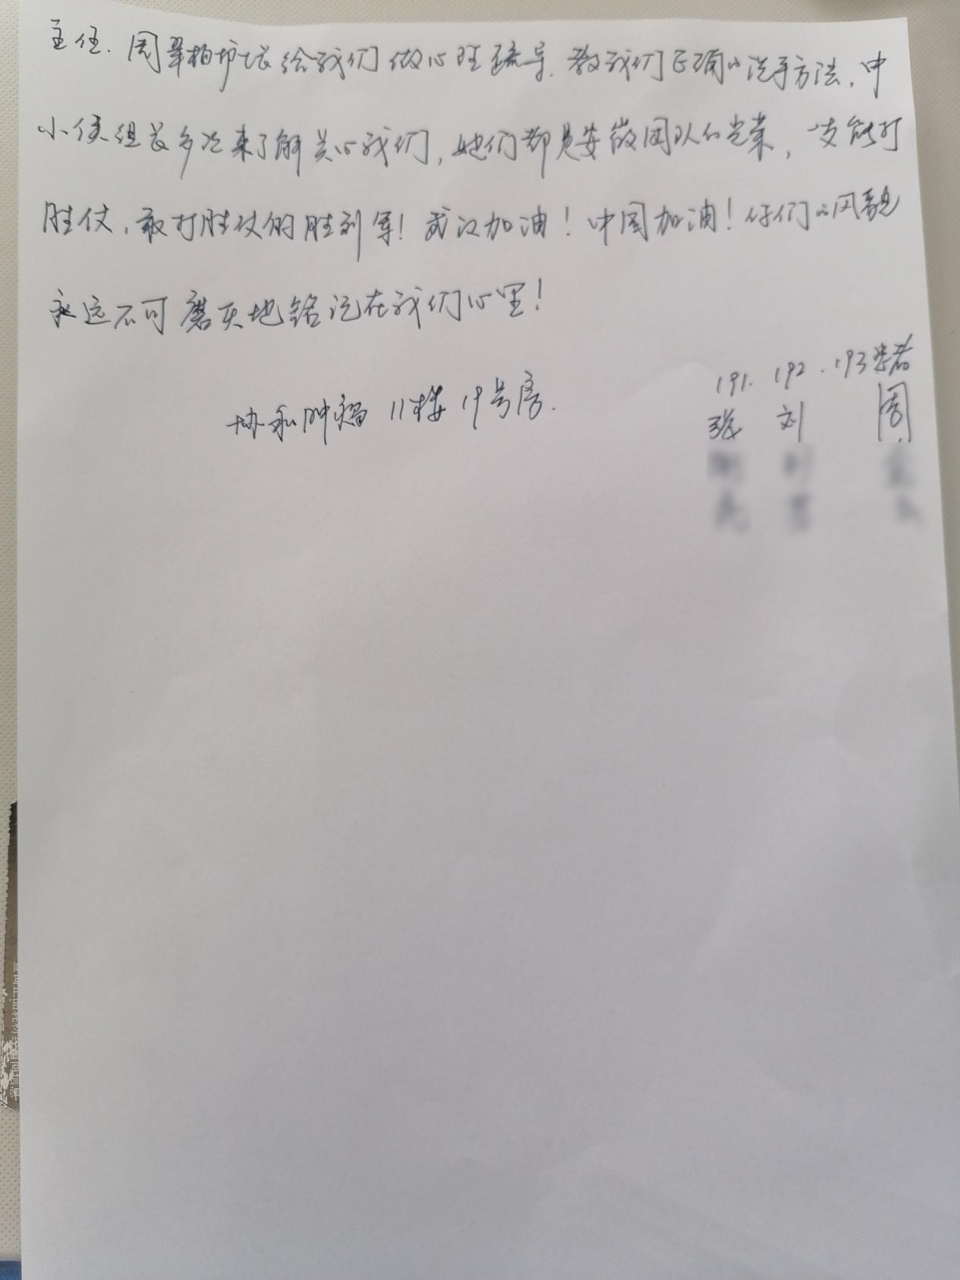 主任.周翠柏护长给我们做心理疏导.教我们正确的洗手方法,中
小侠组长多次来了解关心我们,她们都是安徽团队的光荣,一支能打
胜仗,敢打胜仗的胜利军!武汉加油!中国加油!你们的风貌
永远不可磨灭地铭记在我们心里!
协和肿瘤 11楼 19号房.
191. 192. 193患者
张 刘 周